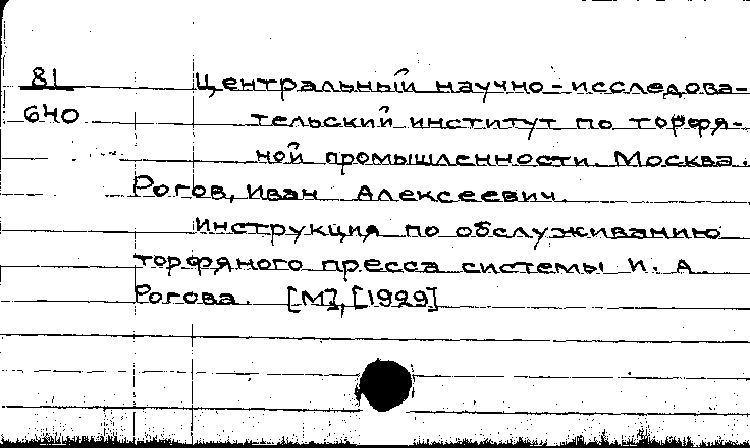 81
640
Центральный научно-исследова-
тельский институт по торфя-
ной промышленности. Москва.
Рогов, Иван Алексеевич.
Инструкция по обслуживанию
торфяного пресса системы И. А.
Рогова. [М], [1929]